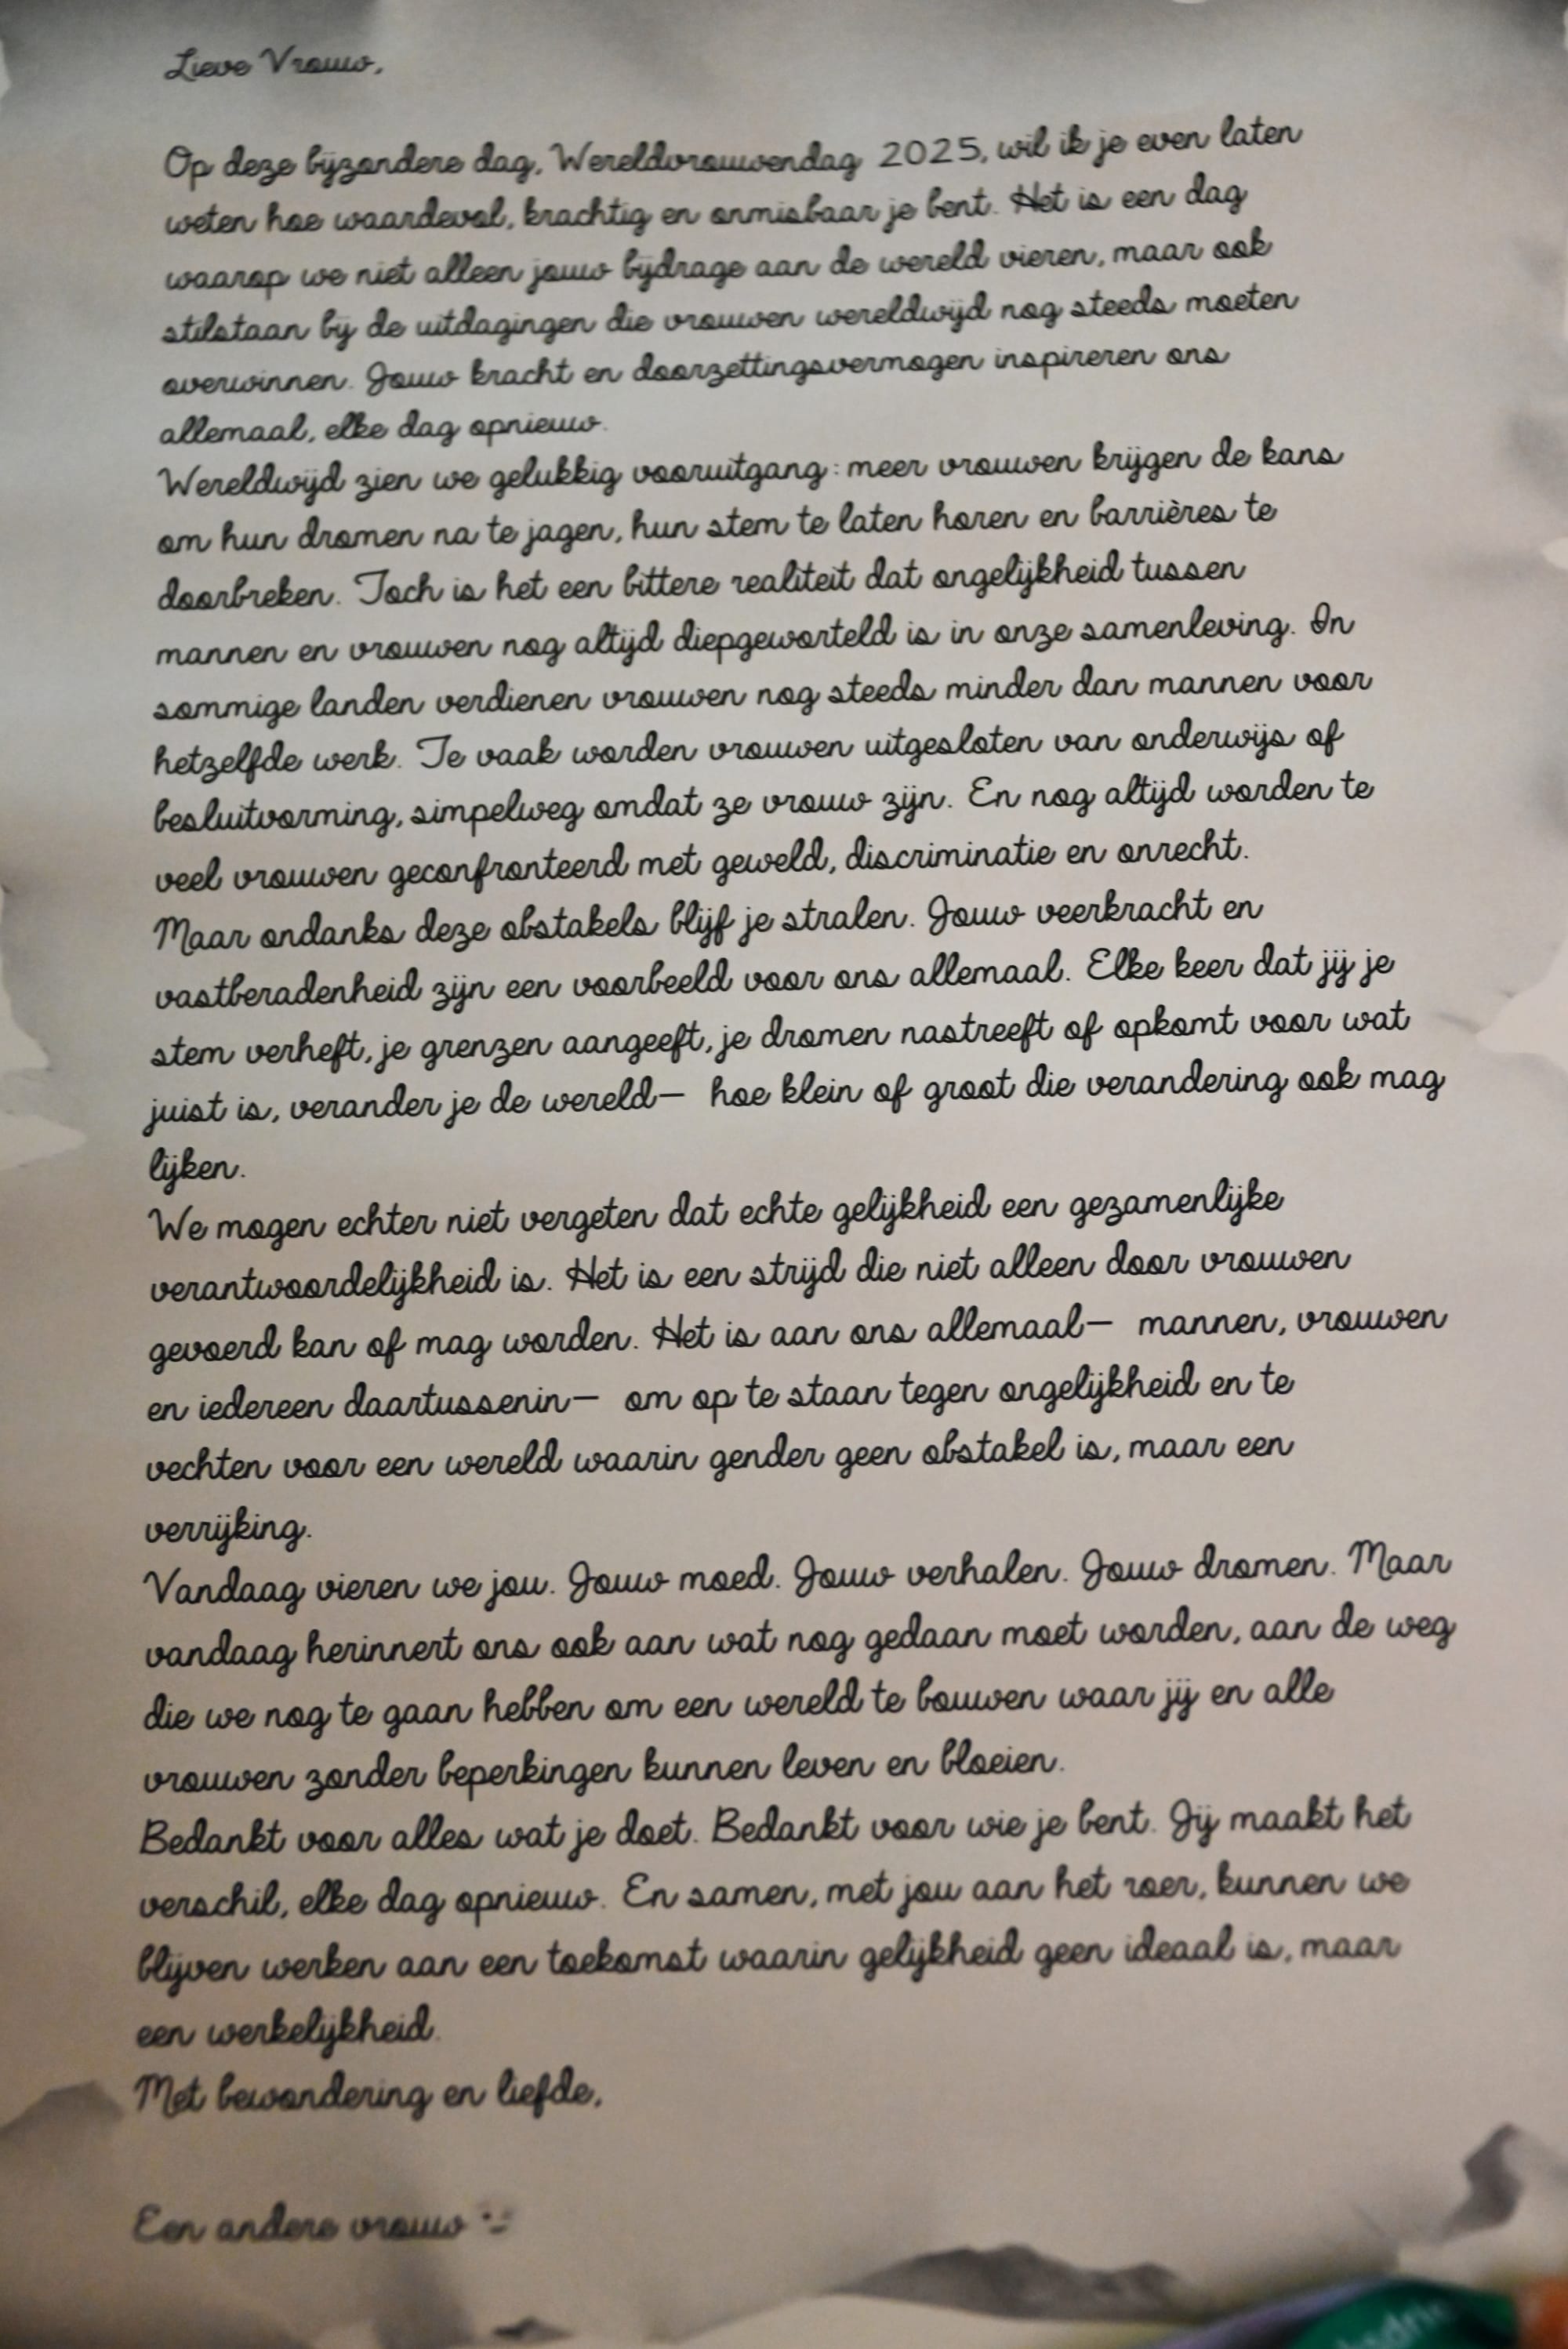 Lieve Vrouw,
Op deze bijzondere dag, Wereldvrouwendag 2025, wil ik je even laten
weten hoe waardevol, krachtig en onmisbaar je bent. Het is een dag
waarop we niet alleen jouw bijdrage aan de wereld vieren, maar ook
stilstaan bij de uitdagingen die vrouwen wereldwijd nog steeds moeten
overwinnen. Jouw kracht en doorzettingsvermogen inspireren ons
allemaal, elke dag opnieuw.
Wereldwijd zien we gelukkig vooruitgang: meer vrouwen krijgen de kans
om hun dromen na te jagen, hun stem te laten horen en barrières te
doorbreken. Toch is het een bittere realiteit dat ongelijkheid tussen
mannen en vrouwen nog altijd diepgeworteld is in onze samenleving. In
sommige landen verdienen vrouwen nog steeds minder dan mannen voor
hetzelfde werk. Te vaak worden vrouwen uitgesloten van onderwijs of
besluitvorming, simpelweg omdat ze vrouw zijn. En nog altijd worden te
veel vrouwen geconfronteerd met geweld, discriminatie en onrecht.
Maar ondanks deze obstakels blijf je stralen. Jouw veerkracht en
vastberadenheid zijn een voorbeeld voor ons allemaal. Elke keer dat jij je
stem verheft, je grenzen aangeeft, je dromen nastreeft of opkomt voor wat
juist is, verander je de wereld— hoe klein of groot die verandering ook mag
lijken.
We mogen echter niet vergeten dat echte gelijkheid een gezamenlijke
verantwoordelijkheid is. Het is een strijd die niet alleen door vrouwen
gevoerd kan of mag worden. Het is aan ons allemaal— mannen, vrouwen
en iedereen daartussenin— om op te staan tegen ongelijkheid en te
vechten voor een wereld waarin gender geen obstakel is, maar een
verrijking.
Vandaag vieren we jou. Jouw moed. Jouw verhalen. Jouw dromen. Maar
vandaag herinnert ons ook aan wat nog gedaan moet worden, aan de weg
die we nog te gaan hebben om een wereld te bouwen waar jij en alle
vrouwen zonder beperkingen kunnen leven en bloeien.
Bedankt voor alles wat je doet. Bedankt voor wie je bent. Jij maakt het
verschil, elke dag opnieuw. En samen, met jou aan het roer, kunnen we
blijven werken aan een toekomst waarin gelijkheid geen ideaal is, maar
een werkelijkheid.
Met bewondering en liefde,
Een andere vrouw